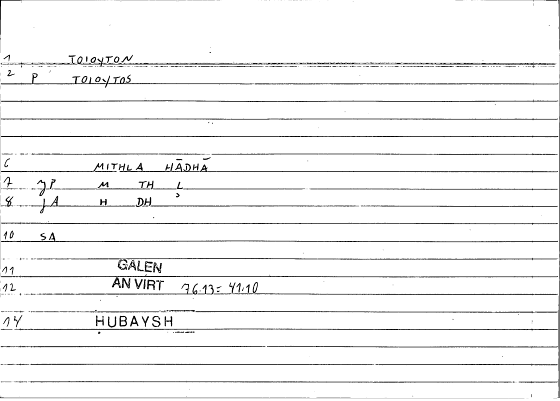 1 TOIOYTON
2 P TOIOYTOS
6 MITHLA HĀDHĀ
7 gP M TH L
8 gA H DH
10 SA
11 GALEN
12 AN VIRT 76.13 = 41.10
14 ḤUBAYSH